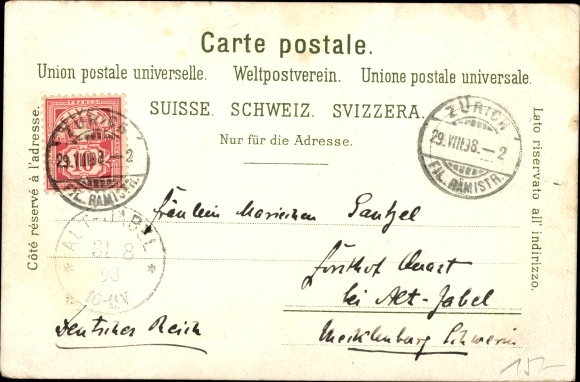 Carte postale.
Union postale universelle. Weltpostverein. Unione postale universale.
SUISSE. SCHWEIZ. SVIZZERA.
Nur für die Adresse.
Côté réservé à l'adresse.
Lato riservato all' indirizzo.
FRANCO
10
ZÜRICH
29.VIII.98.–2
FIL. RÄMISTR.
ZÜRICH
29.VIII.98.–2
FIL. RÄMISTR.
ALT-JABEL
31 8
98
Fräulein Mariechen Pantzel
Forsthof
bei Alt-Jabel
Mecklenburg Schwerin
Deutsches Reich
15.-